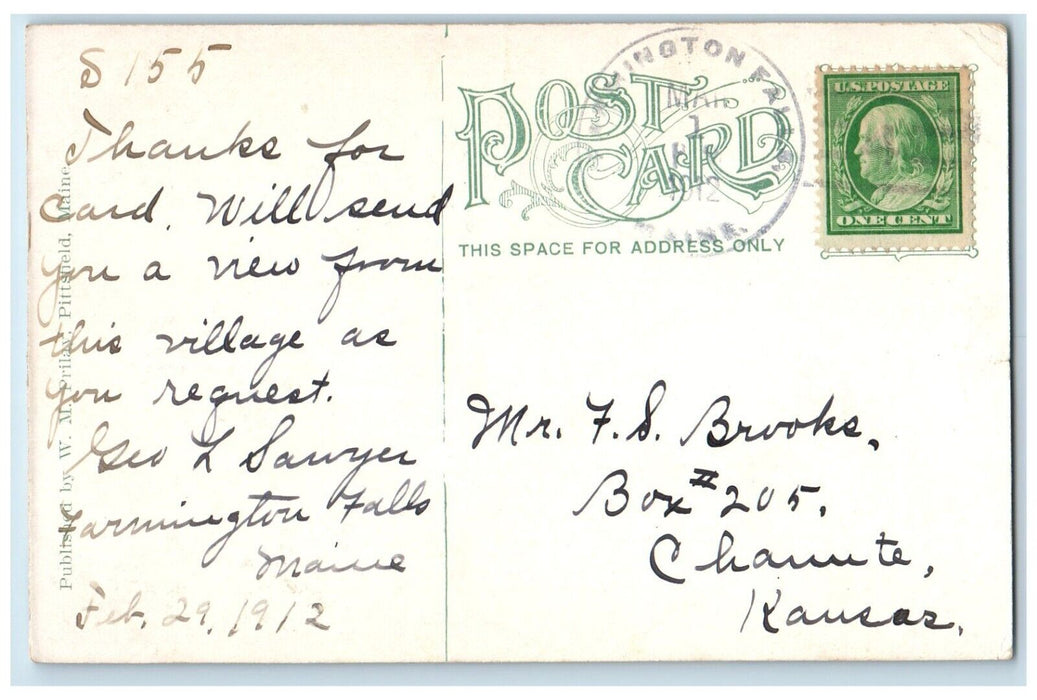 S 155
Thanks for
card. Will send
you a view from
this village as
you request.
Geo L Sawyer
Farmington Falls
Maine
Feb. 29, 1912
Published by W. M. Pittsfield, Maine
POST CARD
THIS SPACE FOR ADDRESS ONLY
MINGTON FALLS
MAR
1
1912
MAINE.
U.S. POSTAGE
ONE CENT
Mr. F. S. Brooks,
Box # 205,
Chanute,
Kansas.